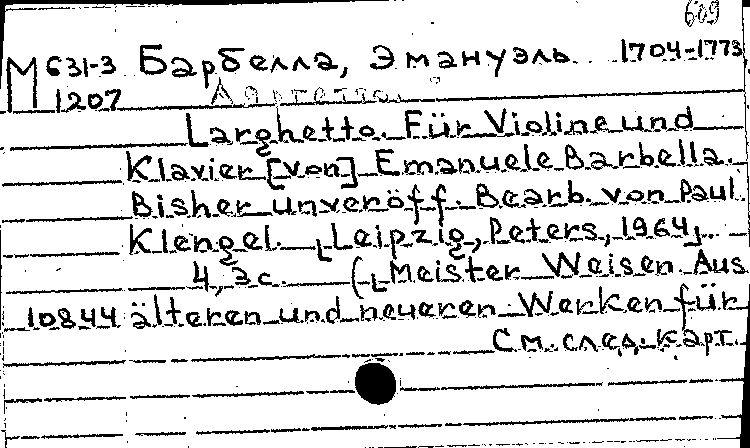 609
М 631-3 Барбелла, Эмануэль 1704-1773
1207 Ларгетто.
Larghetto. Für Violine und
Klavier [von] Emanuele Barbella.
Bisher unveröff. Bearb. von Paul
Klengel. [Leipzig, Peters, 1964].
4, 3 c. ([Meister Weisen Aus
10844 älteren und neueren Werken für
См. след. карт.